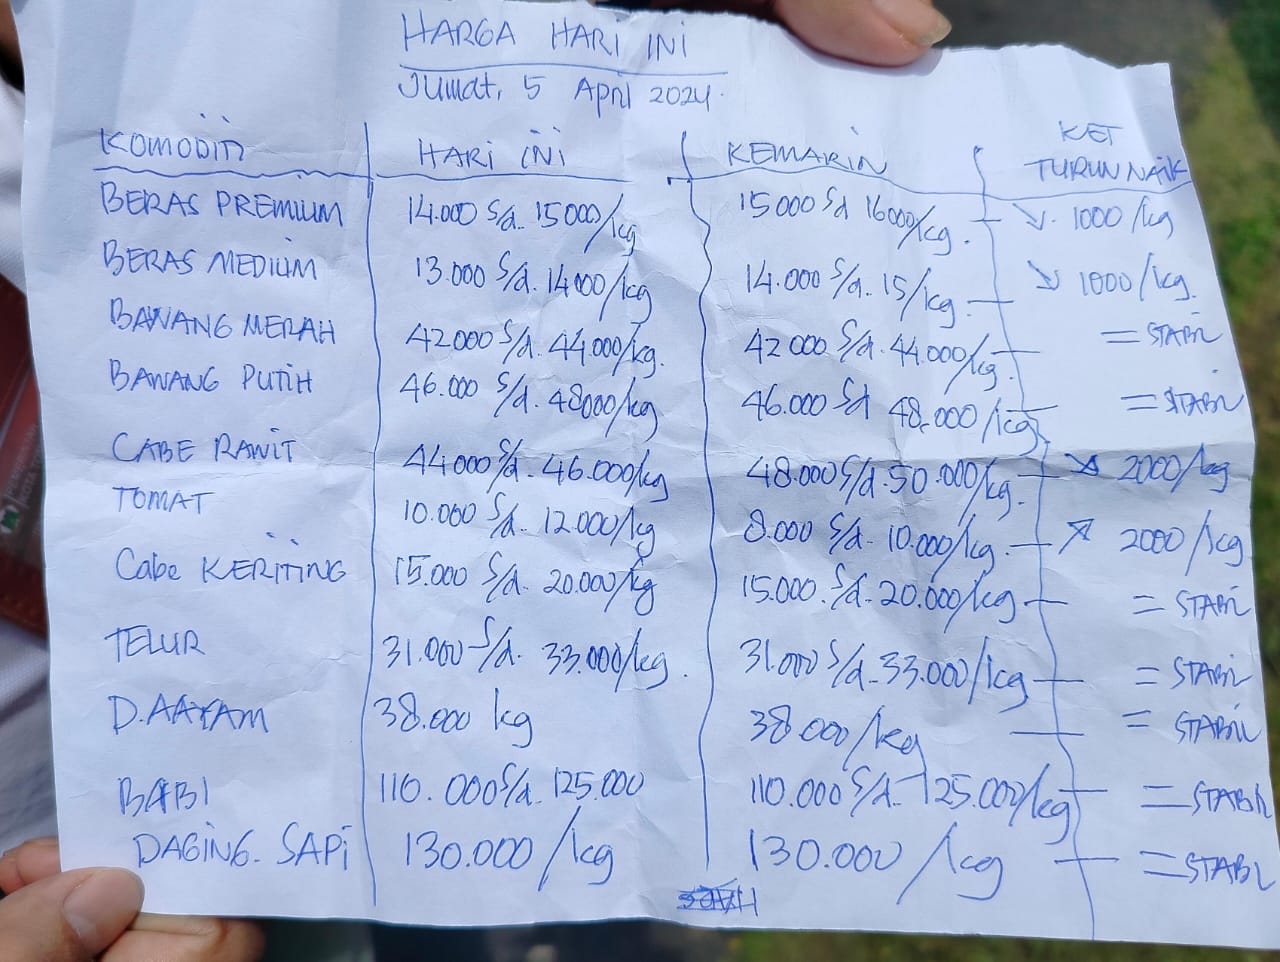 HARGA HARI INI
Jumat, 5 April 2024.
KOMODITI HARI INI KEMARIN KET TURUN NAIK
BERAS PREMIUM 14.000 S/d. 15000/kg 15000 Sd 16000/kg. ↘. 1000/kg
BERAS MEDIUM 13.000 S/d. 14000/kg 14.000 S/d. 15/kg ↘ 1000/kg.
BAWANG MERAH 42000 S/d. 44.000/kg. 42000 S/d. 44.000/kg. = STABIL
BAWANG PUTIH 46.000 S/d. 48000/kg 46.000 Sd 48.000/kg = STABIL
CABE RAWIT 44000 S/d. 46.000/kg 48.000 S/d. 50.000/kg. ↘ 2000/kg
TOMAT 10.000 S/d. 12.000/kg 8.000 S/d. 10.000/kg. ↗ 2000/kg
Cabe KERITING 15.000 S/d. 20.000/kg 15.000. S/d. 20.000/kg = STABIL
TELUR 31.000 S/d. 33.000/kg. 31.000 S/d. 33.000/kg = STABIL
D. AAYAM 38.000 kg 38.000/kg = STABIL
BABI 110.000 S/d. 125.000 110.000 S/d. 125.000/kg = STABIL
DAGING. SAPI 130.000/kg 130.000/kg = STABL